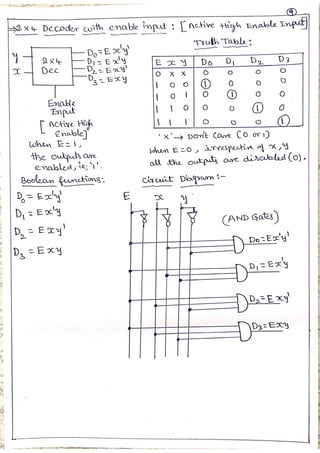 9
→ 2x4 Decoder with enable input : [Active High Enable Input]
y
x
2x4
Dec
D0=E x'y'
D1=E x'y
D2=E x y'
D3=E x y
Enable
Input
[Active High
Enable]
when E=1,
the outputs are
enabled, ie; '1'.
Truth Table:
E x y D0 D1 D2 D3
0 X X 0 0 0 0
1 0 0 1 0 0 0
1 0 1 0 1 0 0
1 1 0 0 0 1 0
1 1 1 0 0 0 1
'X' → Don't Care (0 or 1)
when E=0, irrespective of x,y
all the outputs are disabled (0).
Boolean functions:
D0 = E x'y'
D1 = E x'y
D2 = E x y'
D3 = E x y
Circuit Diagram :-
E x y
(AND Gates)
D0=Ex'y'
D1=Ex'y
D2=Exy'
D3=Exy